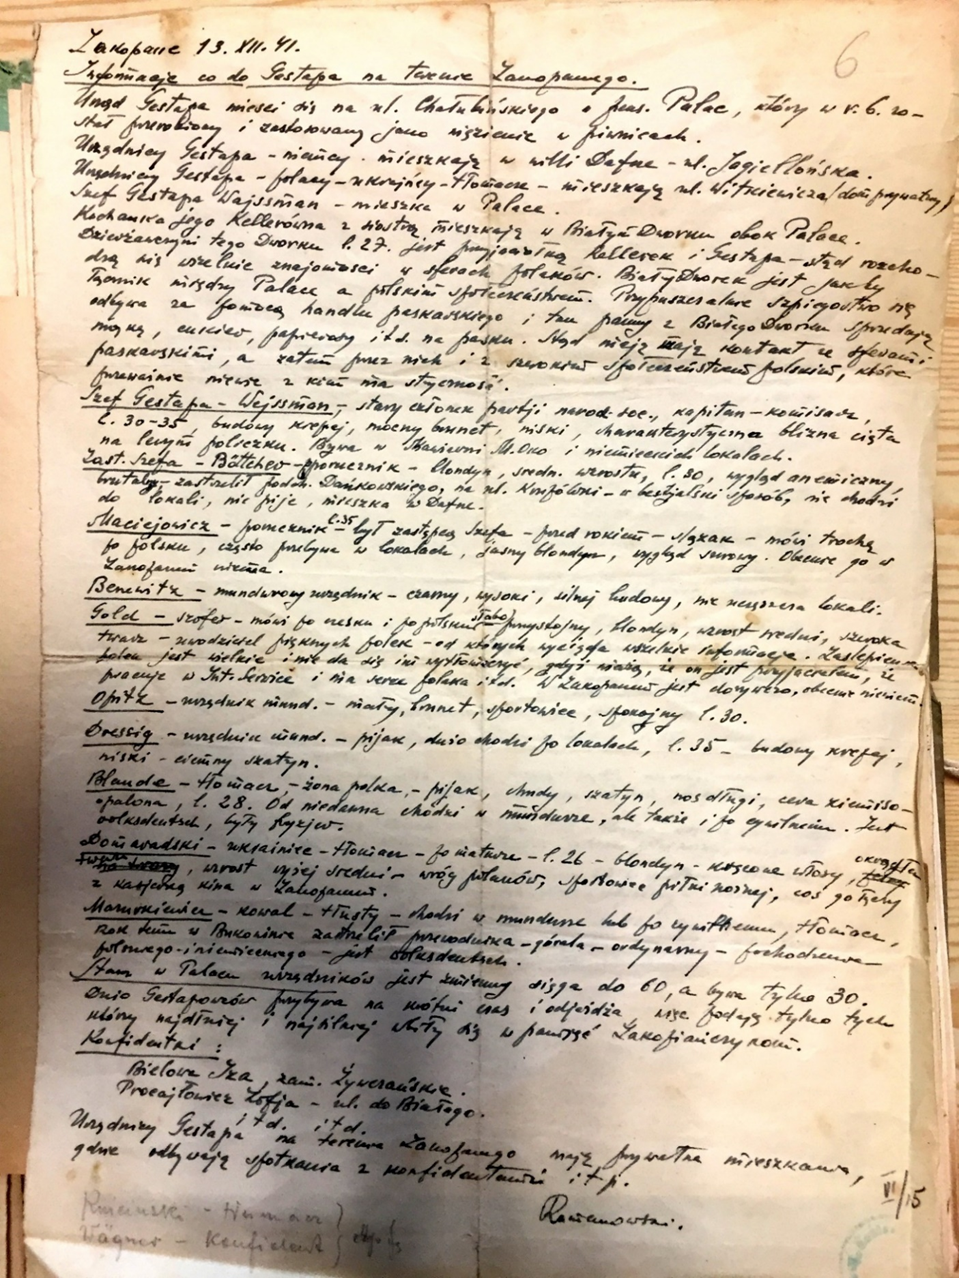 6
Zakopane 13. XII. 41.
Informacje co do Gestapa na terenie Zakopanego.
Urząd Gestapa mieści się na ul. Chałubińskiego w pens. Palace, który w r. b. zo-
stał przerobiony i zastosowany jako więzienie w piwnicach.
Urzędnicy Gestapa - niemcy - mieszkają w willi Dafne - ul. Jagiellońska.
Urzędnicy Gestapa - polacy - ukraińcy - tłomacze - mieszkają ul. Witkiewicza /dom prywatny/
Szef Gestapa Wajssman - mieszka w Palace.
Kochanka jego Kellerówna z siostrą mieszkają w Białym Dworku obok Palace.
Dzierżawczyni tego Dworku l. 27. jest przyjaciółką Kellerek i Gestapa - stąd rozcho-
dzą się wszelkie znajomości w sferach polaków. Biały Dworek jest jakby
łącznik między Palace a polskim społeczeństwem. Przypuszczalnie szpiegostwo się
odbywa za pomocą handlu paskarskiego i tak panny z Białego Dworku sprzedają
mąkę, cukier, papierosy itd. na pasku. Stąd mają kontakt ze sferami
paskarskimi, a zatem przez nich i z szerokim społeczeństwem polskim, które
przeważnie niewie z kim ma styczność.
Szef Gestapa - Wejssman, - stary członek partji narod-soc., kapitan - komisarz,
l. 30-35, budowy krępej, mocny brunet, niski, charakterystyczna blizna cięta
na lewym policzku. Bywa w Kawiarni M. Oko i niemieckich lokalach.
Zast. Szefa - Böttcher - porucznik - blondyn, średn. wzrostu, l. 30, wygląd anemiczny,
brutalny - zastrzelił podch. Dańkowskiego, na ul. Krupówki - w bestjalski sposób, nie chodzi
do lokali, nie pije, mieszka w Dafne.
Maciejowicz - porucznik l. 35 - był zastępcą Szefa - przed rokiem - ślązak - mówi trochę
po polsku, często przebywa w lokalach, jasny blondyn, wygląd surowy. Obecnie go w
Zakopanem niema.
Benewitz - mundurowy urzędnik - czarny, wysoki, silnej budowy, nie uczęszcza lokali.
Gold - szofer - mówi po czesku i po polsku słabo, przystojny, blondyn, wzrost średni, szeroka
twarz - uwodziciel pięknych polek - od których wyciąga wszelkie informacje. Zaślepienie
polek jest wielkie i nie da się im wytłomaczyć, gdyż mówią, że on jest przyjacielem, że
pracuje w Int. Service i ma serce polskie itd. W Zakopanem jest dorywczo, obecnie niema.
Opitz - urzędnik mund. - mały, brunet, sportowiec, spokojny l. 30.
Dressig - urzędnik mund. - pijak, dużo chodzi po lokalach, l. 35 - budowy krępej,
niski - ciemny szatyn.
Blande - tłomacz, - żona polka, - pijak, chudy, szatyn, nos długi, cera ziemisto-
opalona, l. 28. Od niedawna chodzi w mundurze, ale także i po cywilnemu. Jest
volksdeutsch, były fryzjer.
Domaradski - ukrainiec - tłomacz - po maturze - l. 26 - blondyn - kręcone włosy, okrągła
twarz, wzrost wyżej średni - wróg polaków, sportowiec piłki nożnej, coś go łączy
z kasjerką kina w Zakopanem.
Mazurkiewicz - kowal - tłusty - chodzi w mundurze lub po cywilnemu, tłomacz,
rok temu w Bukowinie zastrzelił przewodnika - górala - ordynarny - pochodzenia
polskiego i niemieckiego - jest volksdeutsch.
Stan w Palace urzędników jest zmienny sięga do 60, a bywa tylko 30.
Dużo Gestapowców przybywa na krótki czas i odjeżdża, więc podaję tylko tych
którzy najdłużej i najsilniej wbili się w pamięć Zakopiańczykom.
Konfidentki:
Bielowa Iza, zam. Żywczańskie.
Procajłowicz Zofja - ul. do Białego.
itd. itd.
Urzędnicy Gestapa na terenie Zakopanego mają prywatne mieszkania,
gdzie odbywają spotkania z konfidentami itp.
Romanowski.
VI/15
- tłumacz }
Wagner - Konfident }